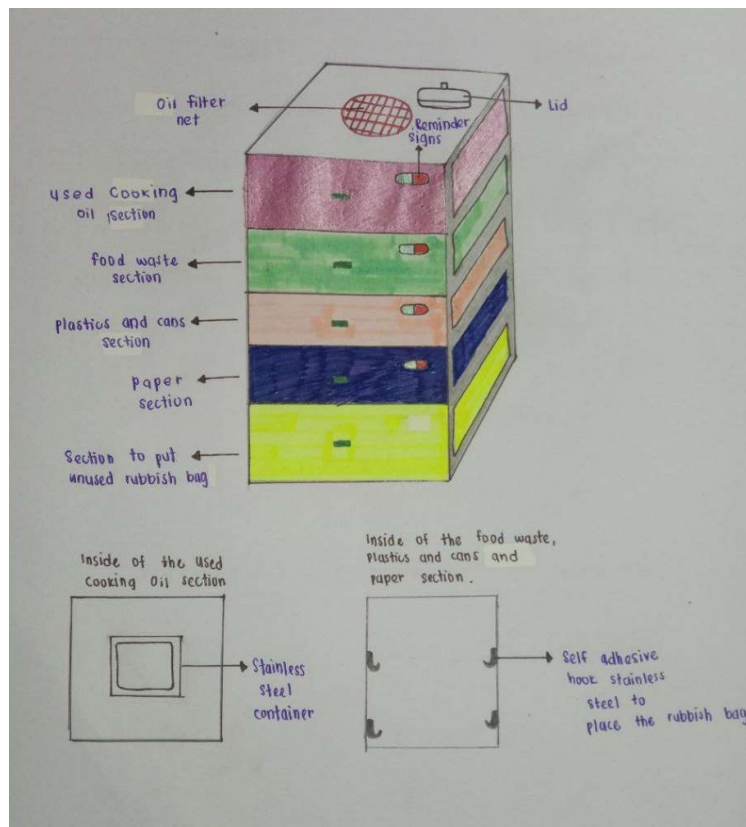 Oil filter
net
Lid
Reminder
signs
used Cooking
oil section
food waste
section
plastics and cans
section
paper
section
Section to put
unused rubbish bag
Inside of the used
Cooking Oil section
Stainless
Steel
container
Inside of the food waste,
plastics and cans and
paper section.
Self adhesive
hook stainless
steel to
place the rubbish bag